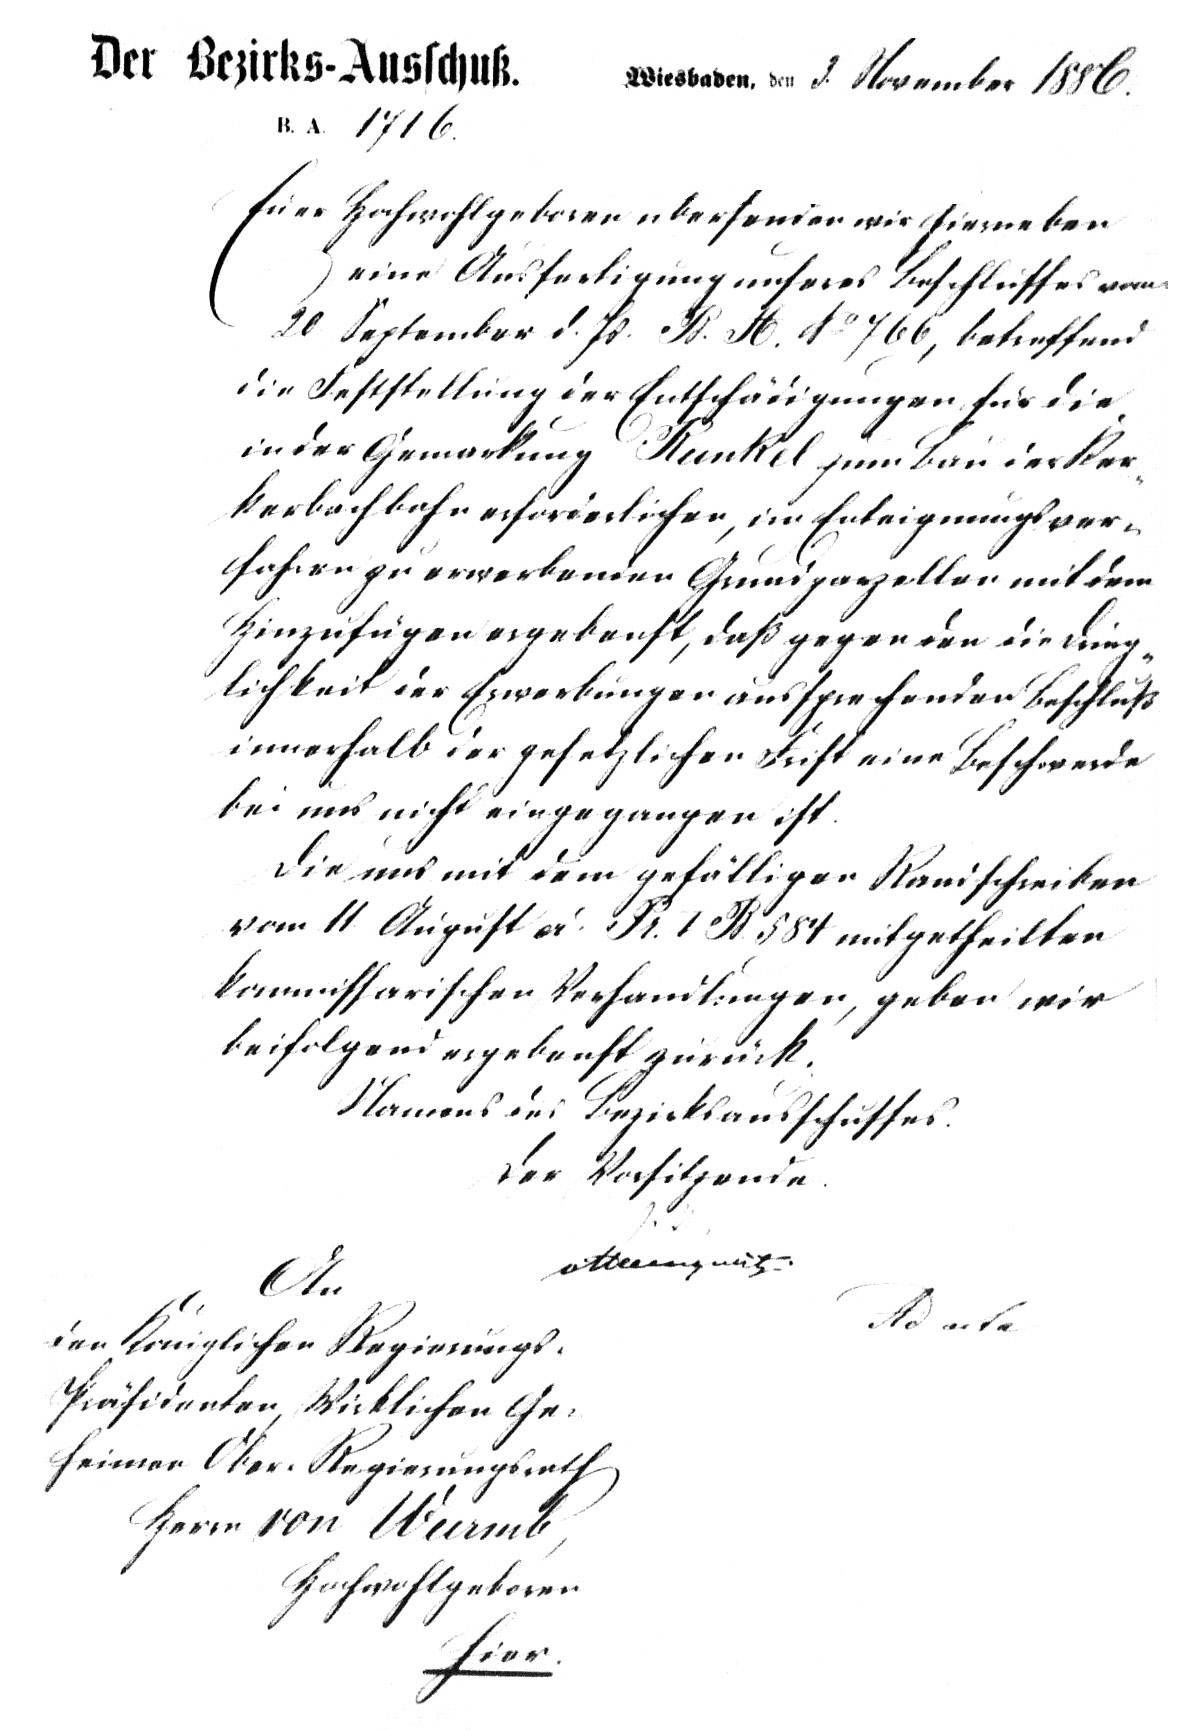 Der Bezirks-Ausschuß.
Wiesbaden, den 3. November 1886.
B. A. 1716.
Euer Hochwohlgeboren übersenden wir hierneben
eine Ausfertigung unseres Beschlusses vom
20 September d. Js. B. A. No 766, betreffend
die Feststellung der Entschädigungen für die
in der Gemarkung Runkel zum Bau der Ker-
kerbachbahn erforderlichen, im Enteignungsver-
fahren zu erwerbenden Grundparzellen mit dem
Hinzufügen ergebenst, daß gegen den die Dring-
lichkeit der Erwerbungen aussprechenden Beschluß
innerhalb der gesetzlichen Frist eine Beschwerde
bei uns nicht eingegangen ist.
Die uns mit dem gefälligen Randschreiben
vom 11 August cr. Pr. I B. 584 mitgetheilten
kommissarischen Verhandlungen, geben wir
beifolgend ergebenst zurück.
Namens des Bezirksausschusses.
Der Vorsitzende.
An
den Königlichen Regierungs-
Präsidenten, Wirklichen Ge-
heimen Ober-Regierungsrath
Herrn von Wurmb,
Hochwohlgeboren
hier.
Ad acta